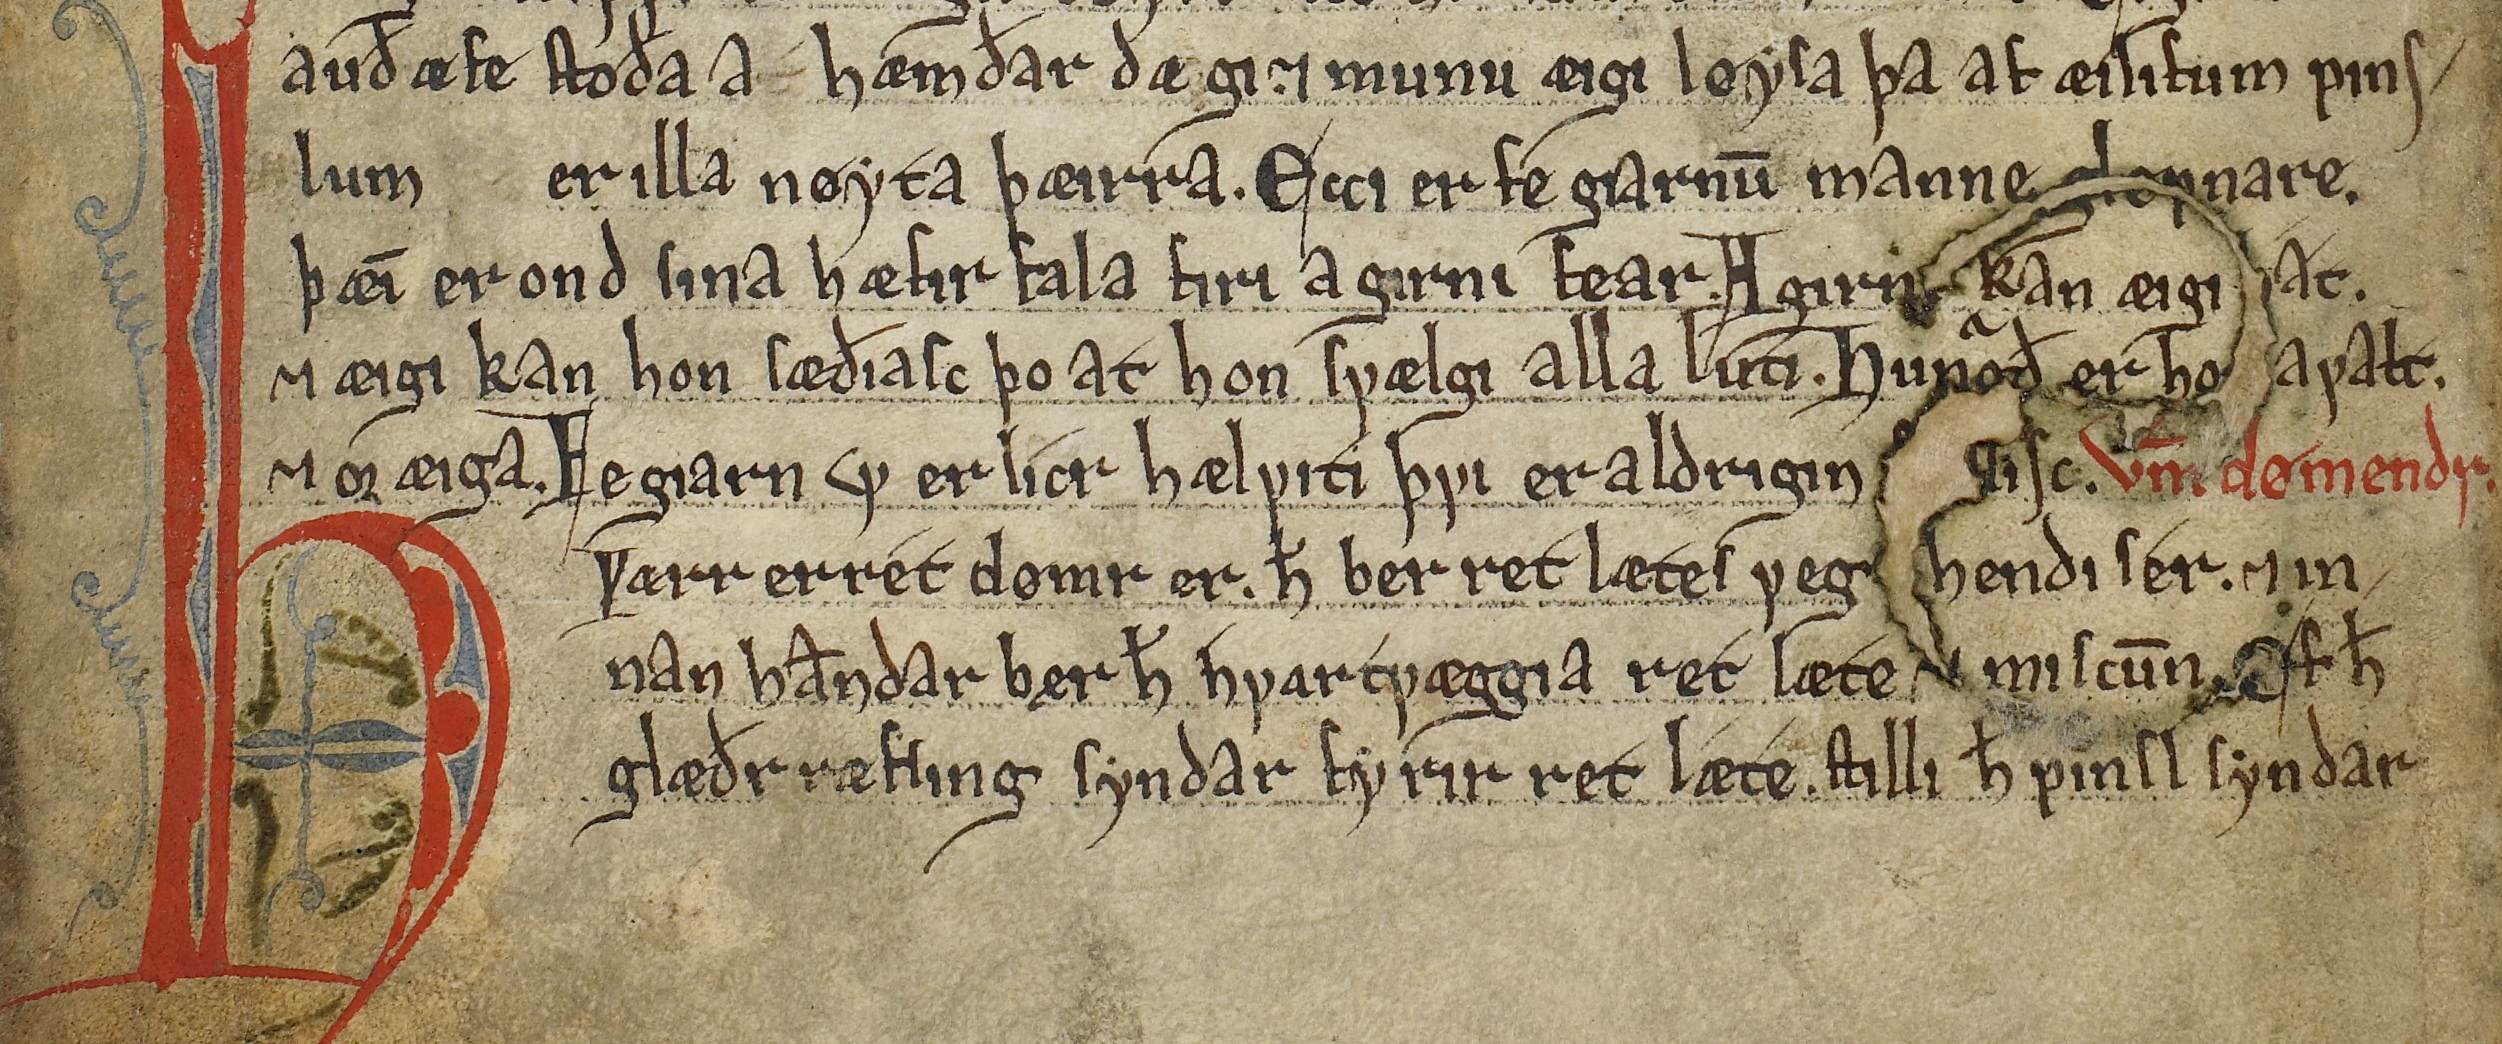 auðæfe ſtoða a hæmðar dægi. ⁊ munu æigi løyſa þa af æilifum pinſ-
lum er illa nøyta þæirra. Ecci er fegiarnū manne glopnare.
þæī er ond ſina hæfir fala firi agirni fear. Agirni kan æigi at.
⁊ æigi kan hon ſæðiaſc þo at hon ſvælgi alla luti. Hunᷓoð er ho avalt.
⁊ oꝝ æiga. Fegiarn ᛘ er licr hælviti þvi er aldrigin giſc. Vm̄ domendr.
Hværr er ret domr er. ħ ber ret lætes veg hendi ſer. ⁊ in-
nan handar ber ħ hvartvæggia ret læte ⁊ miſcūn. Ef ħ
glæðr ræfſing ſyndar fyrir ret læte. ſtilli ħ pinſl ſyndar